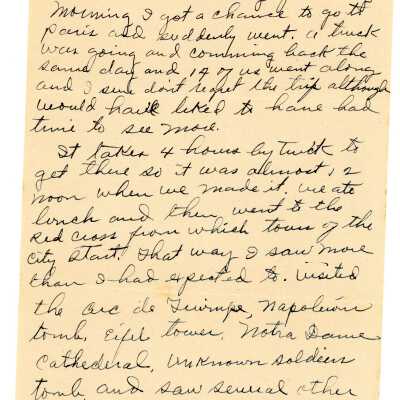 Morning I got a chance to go to
Paris and suddenly went. a truck
was going and comming back the
same day and 14 of us went along
and I sure don't regret the trip although
would have liked to have had
time to see more.
It takes 4 hours by truck to
get there so it was almost 12
noon when we made it. we ate
lunch and then went to the
Red Cross from which tours of the
city start. That way I saw more
than I had expected to. Visited
the arc de Triumpe, Napoleon
tomb, Eifel tower, Notra Dame
Cathederal, unknown soldiers
tomb, and saw several other